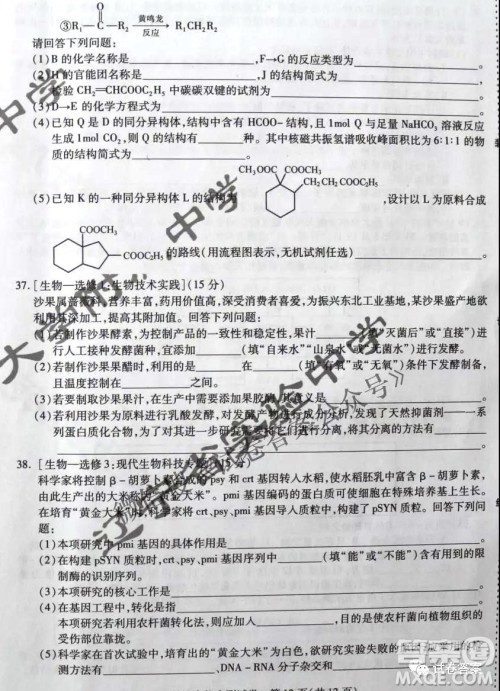 ③R₁—C(=O)—R₂ 黄鸣龙反应 → R₁CH₂R₂
请回答下列问题：
(1)B 的化学名称是________,F→G 的反应类型为________
(2)H 的官能团名称是________,J 的结构简式为________
检验 CH₂=CHCOOC₂H₅ 中碳碳双键的试剂为________
(3)D→E 的化学方程式为________
(4)已知 Q 是 D 的同分异构体,结构中含有 HCOO- 结构,且 1mol Q 与足量 NaHCO₃ 溶液反应
生成 1mol CO₂,则 Q 的结构有________种。其中核磁共振氢谱吸收峰面积比为 6:1:1 的物
质的结构简式为________。
CH₃OOC COOCH₃
CH₂CH₂COOC₂H₅
(5)已知 K 的一种同分异构体 L 的结构为 ,设计以 L 为原料合成
COOCH₃
COOC₂H₅ 的路线(用流程图表示,无机试剂任选)________
37. [生物—选修 1:生物技术实践](15 分)
沙果属蔷薇科,营养丰富,药用价值高,深受消费者喜爱,为振兴东北工业基地,某沙果盛产地欲
利用其深加工,提高其附加值。回答下列问题：
(1)若制作沙果酵素,为控制产品的一致性和稳定性,果汁________(填“灭菌后”或“直接”)进
行人工接种发酵菌种,宜添加________(填“自来水”“山泉水”或“无菌水”)进行发酵。
(2)若制作沙果果醋时,利用的________在________(填“有氧”或“无氧”)条件下发酵制备,
且温度控制在________之间。
(3)若要制取沙果果汁,在生产中需要添加果胶酶,其含义是________
(4)若利用沙果为原料进行乳酸发酵,对发酵产物成分进行分析,发现了天然抑菌剂——一系
列蛋白质化合物,为了对其进一步研究需要将它们进行分离,将其分离的方法有________
38. [生物—选修 3:现代生物科技专题](15 分)
科学家将控制 β-胡萝卜素合成的 psy 和 crt 基因转入水稻,使水稻胚乳中富含 β-胡萝卜素,
由此生产出的大米称为“黄金大米”。pmi 基因编码的蛋白质可使细胞在特殊培养基上生长。
在培育“黄金大米”时,科学家将 crt、psy、pmi 基因导入质粒中,构建了 pSYN 质粒。回答下列问
题：
(1)本项研究中 pmi 基因的具体作用是________
(2)在构建 pSYN 质粒时,crt、psy、pmi 基因序列中________(填“能”或“不能”)含有用到的限
制酶的识别序列。
(3)本项研究的核心工作是________
(4)在基因工程中,转化是指________
本实验若利用农杆菌转化法,则应加入________,目的是使农杆菌向植物组织的
受伤部位靠拢。
(5)科学家在首次试验中,培育出的“黄金大米”为白色,欲研究实验失败的
测方法有________、DNA-RNA 分子杂交和________
江西省实验中学
试卷答案
答案圈
MXQE.COM